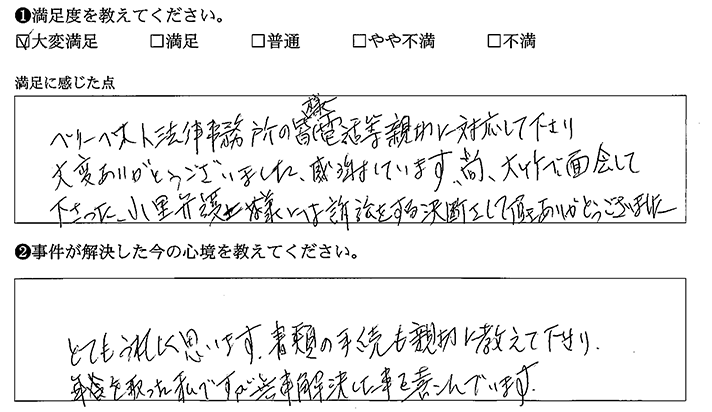 ❶満足度を教えてください。
☑大変満足 □満足 □普通 □やや不満 □不満
満足に感じた点
ベリーベスト法律事務所の皆様電話等親切に対応して下さり
大変ありがとうございました、感謝しています。尚、大竹で面会して
下さった、小里弁護士様には訴訟をする決断をして頂きありがとうございました
❷事件が解決した今の心境を教えてください。
とてもうれしく思います。書類の手続も親切に教えて下さり、
年令を取った私ですが無事解決した事を喜こんでいます。